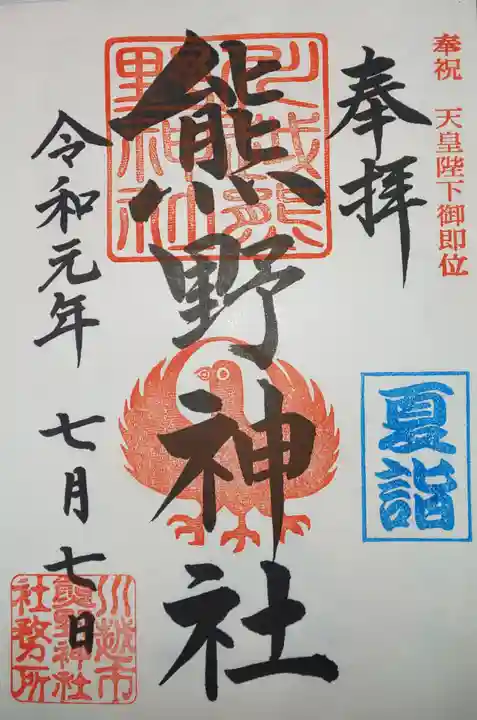 奉祝 天皇陛下御即位
奉拝
夏詣
川越熊野神社
熊野神社
令和元年 七月七日
川越市
熊野神社
社務所